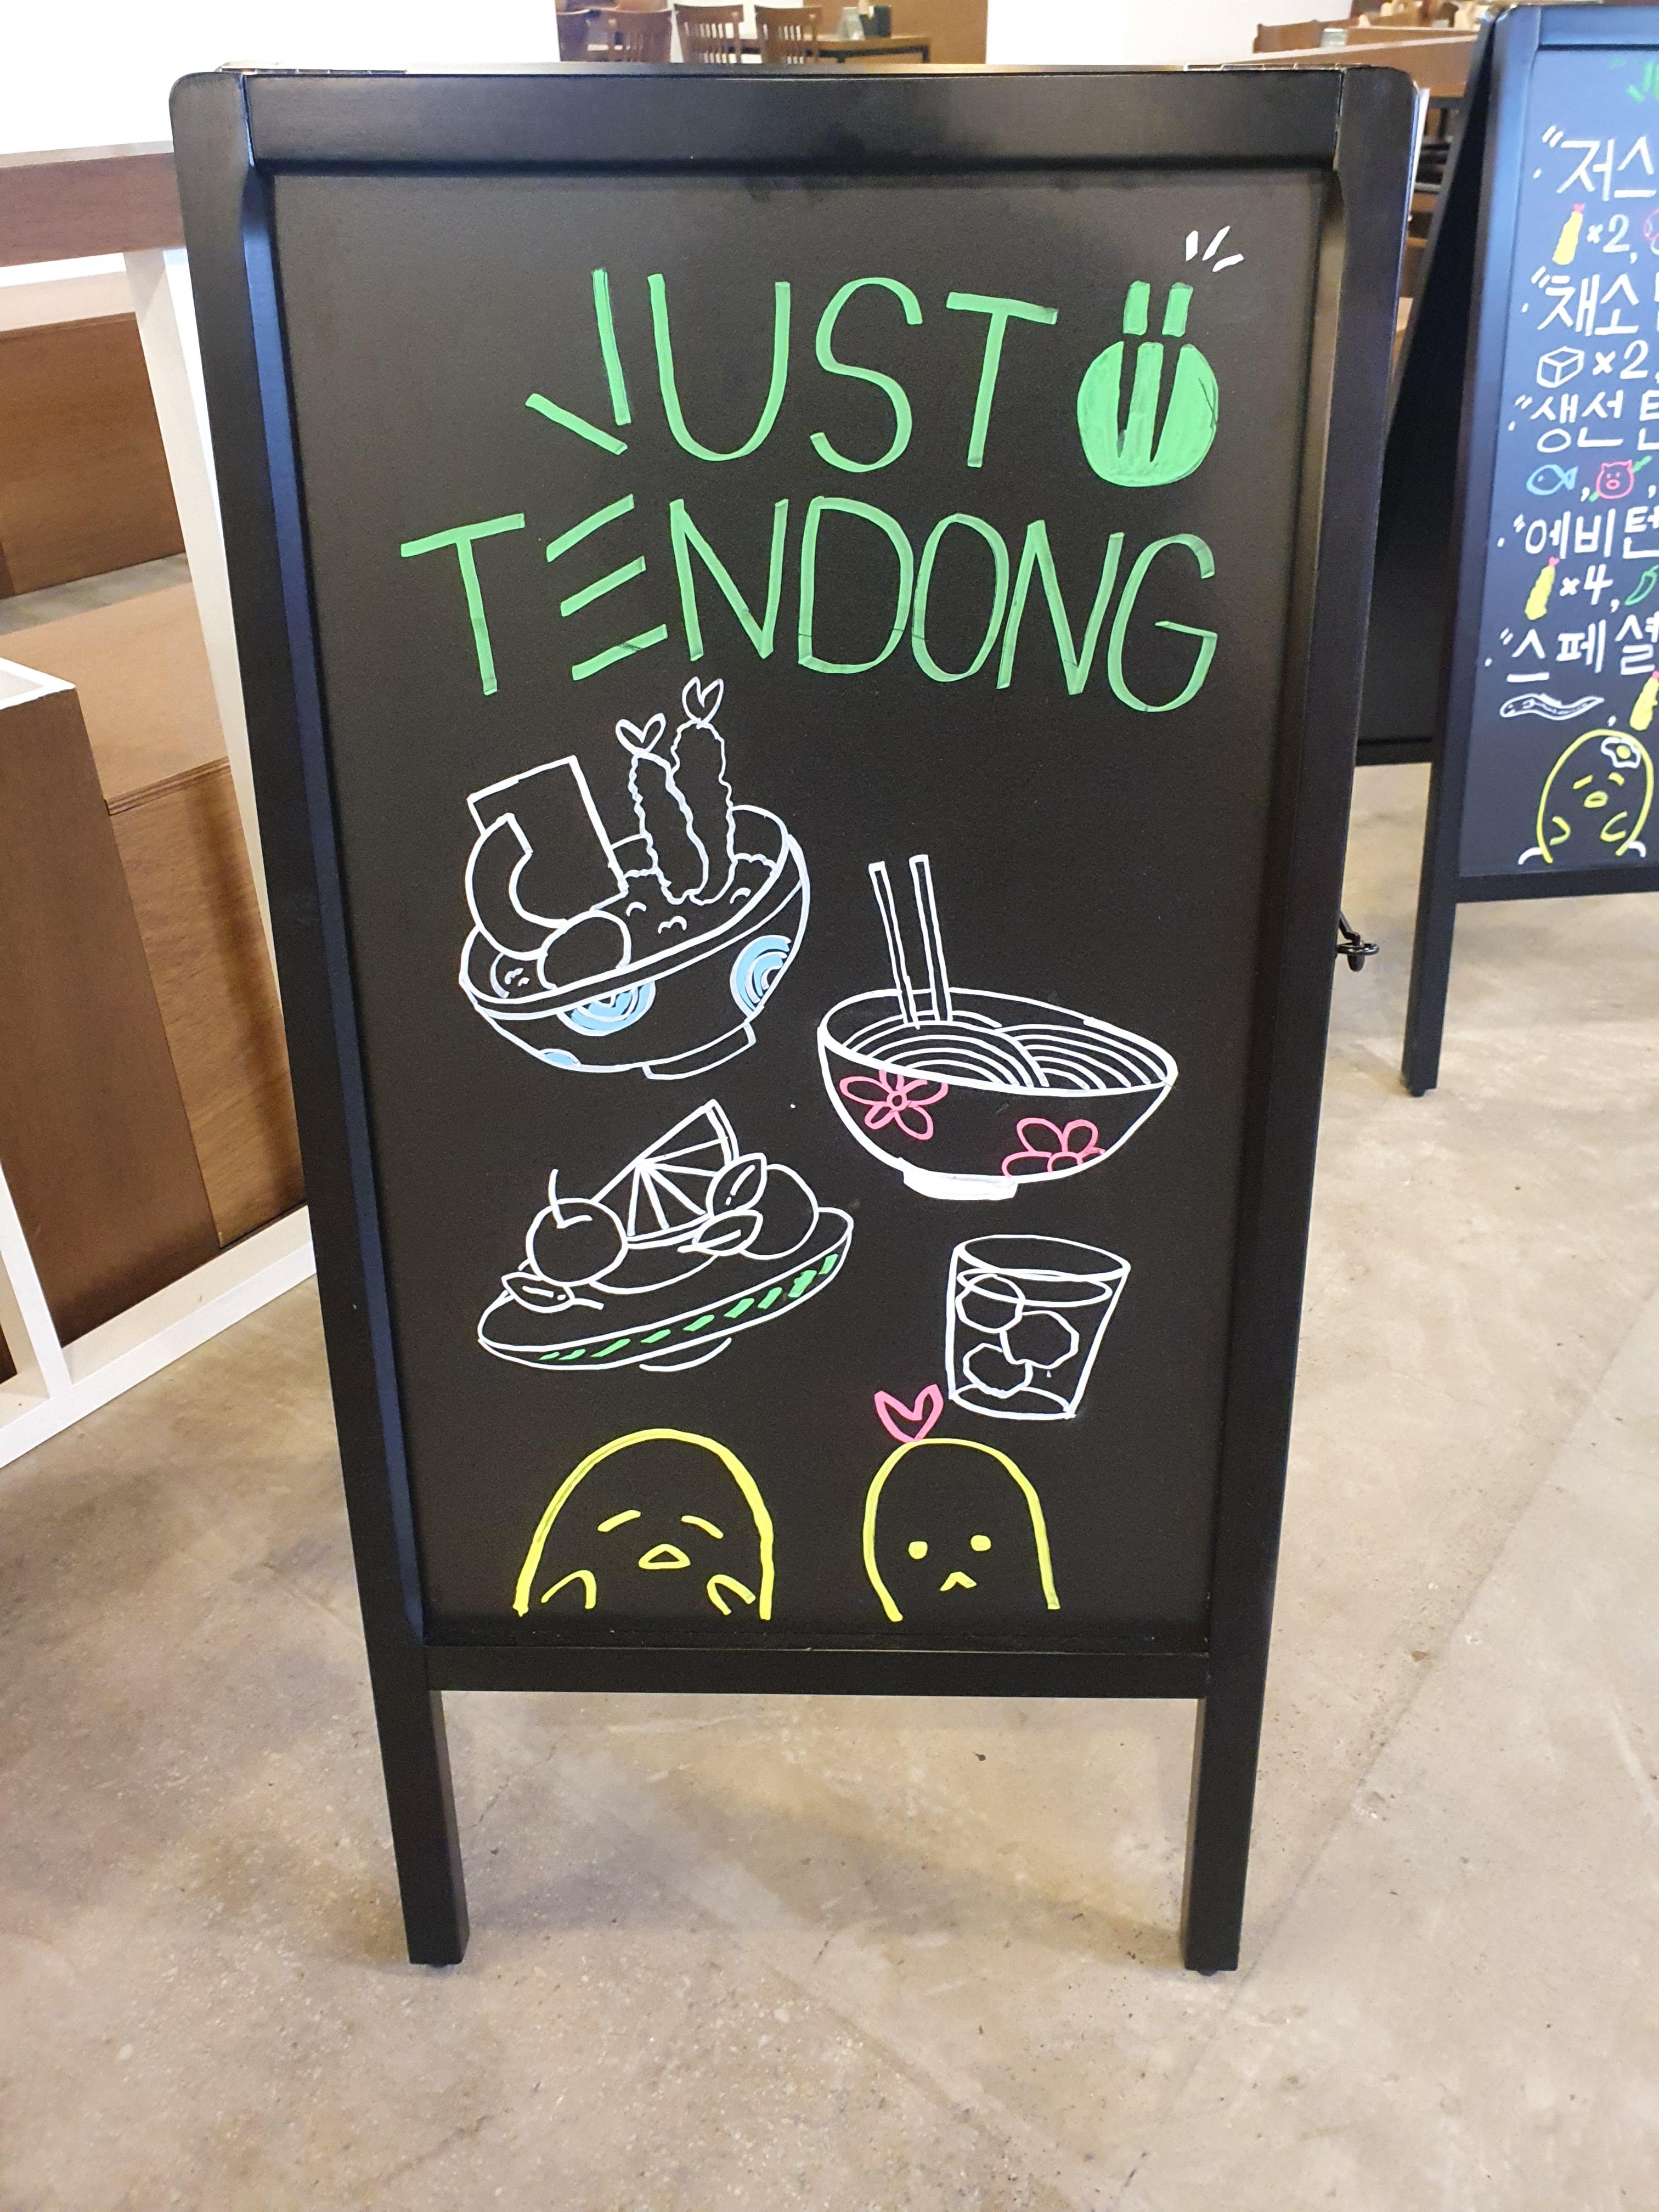 JUST
TENDONG
저스
×2,
채소
×2,
생선 튼
에비텐
×4,
스페셜